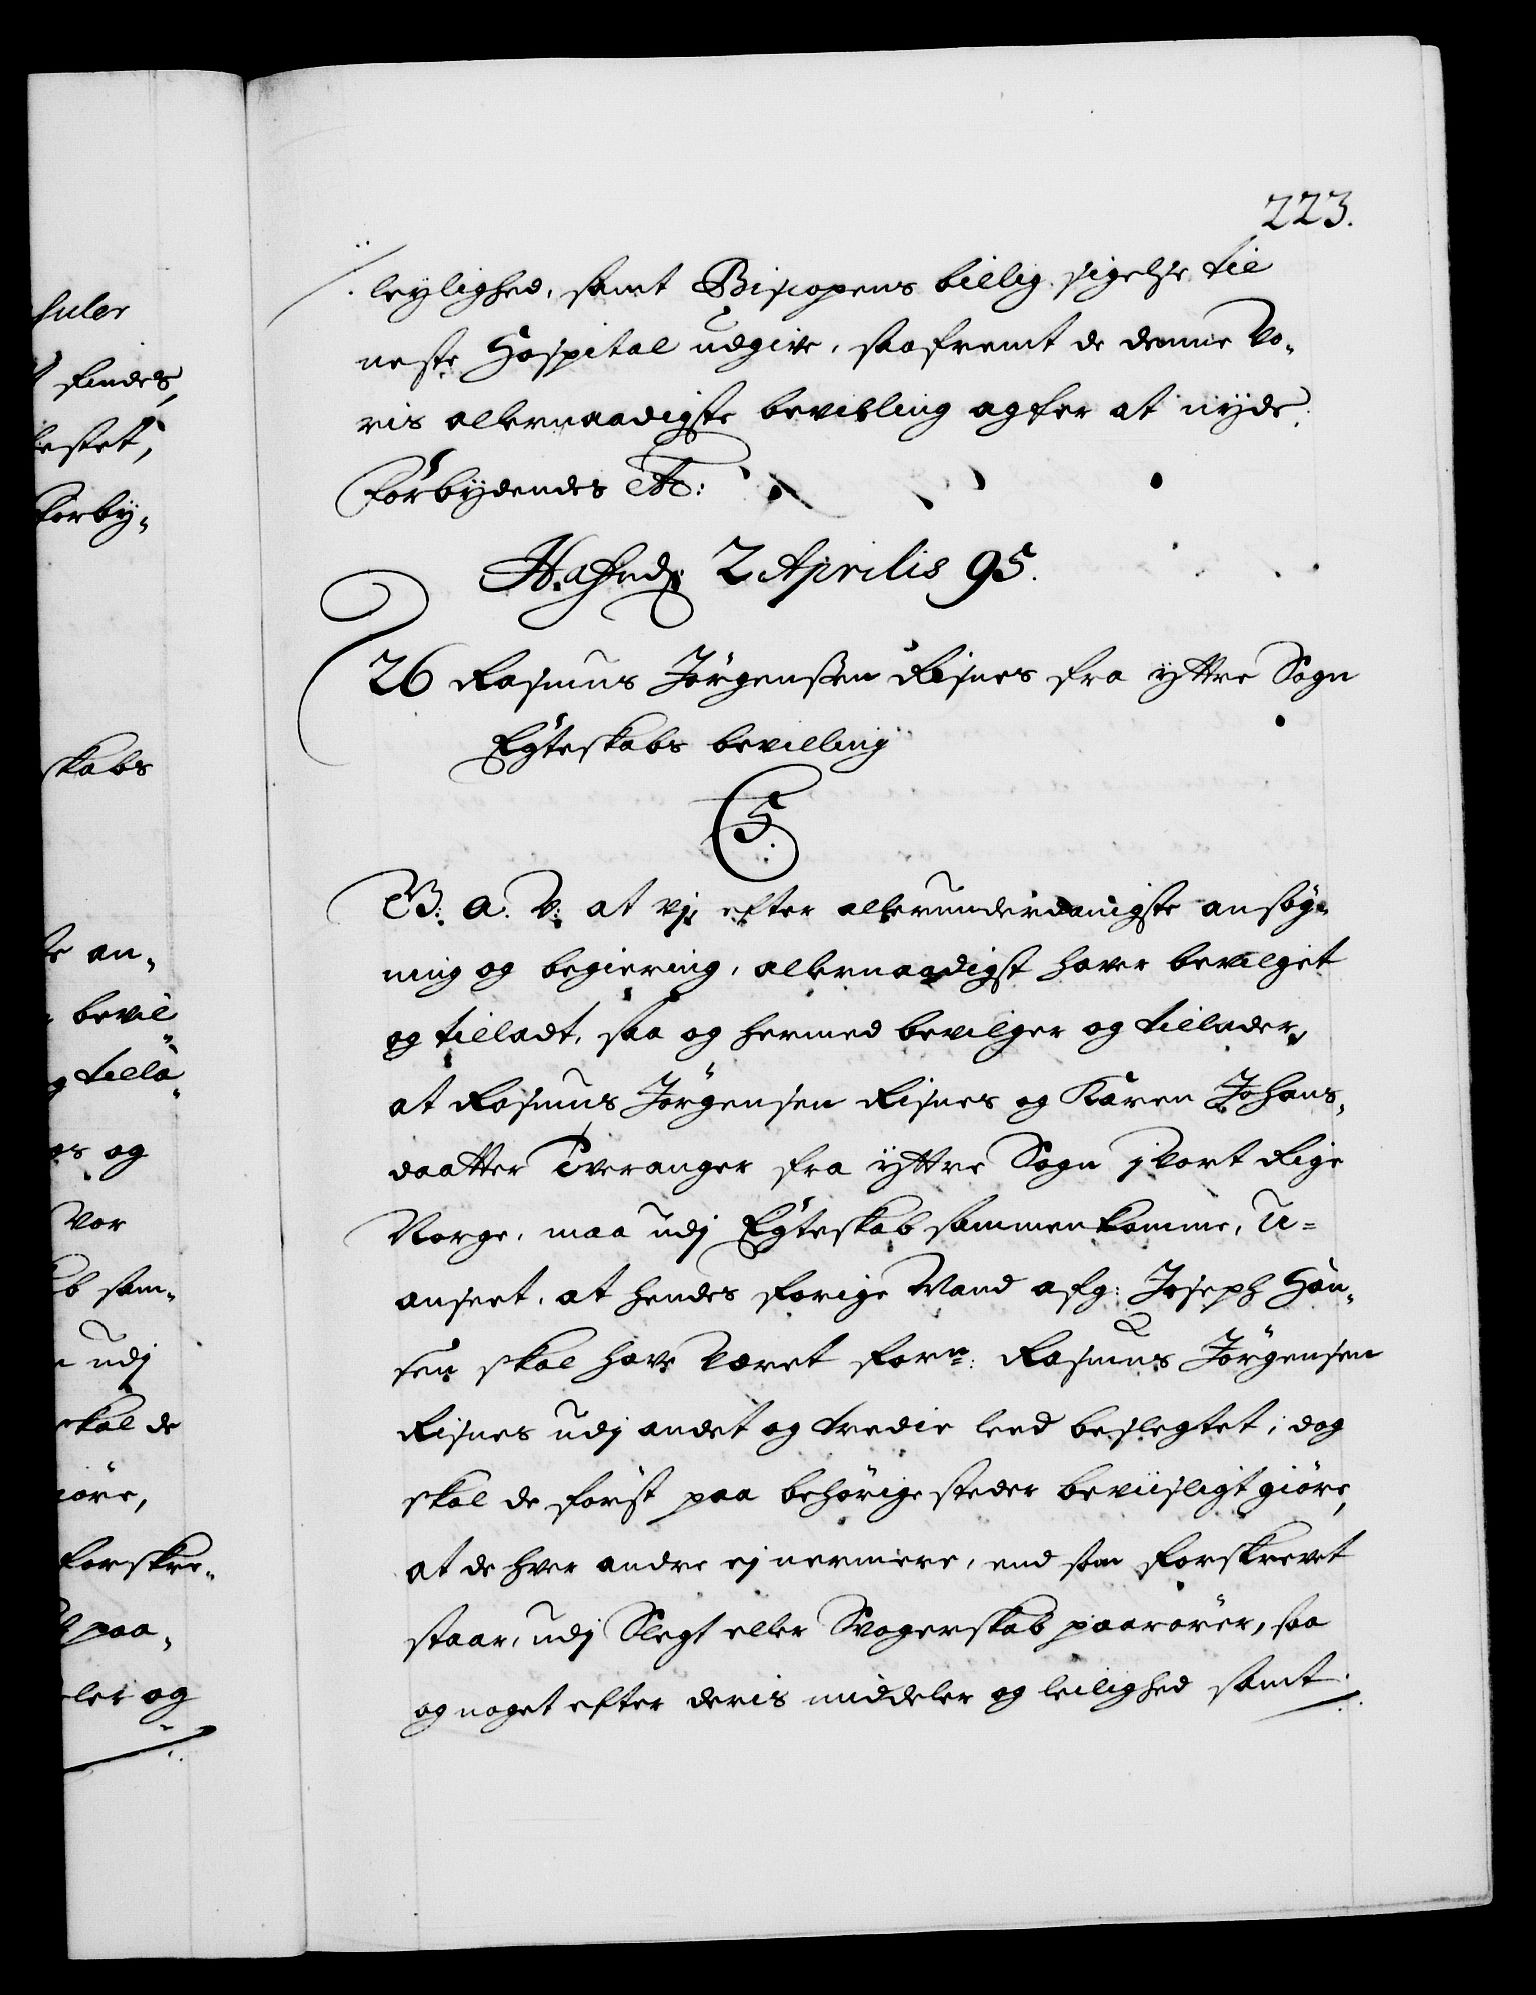 223.
leylighed, samt Biscopens billig sigelse til
neste Hospital udgive, saafremt de denne Vo-
ris allernaadigste bevilling agter at nyde.
Forbydendes &c:
Hafn: 2 Aprilis 95.
26 Rasmus Jörgenßen Risnes fra yttre Sogn
Egteskabs bevilling
C5.
G. a. V. at vj efter allerunderdanigste ansög-
ning og begiering, allernaadigst haver bevilget
og tilladt, saa og hermed bevilger og tillader,
at Rasmus Jörgensen Risnes og Karen Johans-
daatter Tveranger fra yttre Sogn j vort Rige
Norge, maa udj Egteskab sammenkomme, U-
anseet, at hendes forige Mand afg: Joseph Han-
sen skal have veret forn: Rasmus Jörgensen
Risnes udj andet og tredie leed beslegtet; dog
skal de först paa behörige steder beviisligt giöre,
at de hver andre ej nermere, end som forskrevet
staar, udj Slegt eller Svogerskab paarörer, saa
og noget efter deris middeler og leilighed samt
huler
findes,
estet,
Forby-
skabs
te an-
bevil
g tilla-
og
Vor
b sam-
udj
skal de
iöre,
forskre-
paa-
ler og